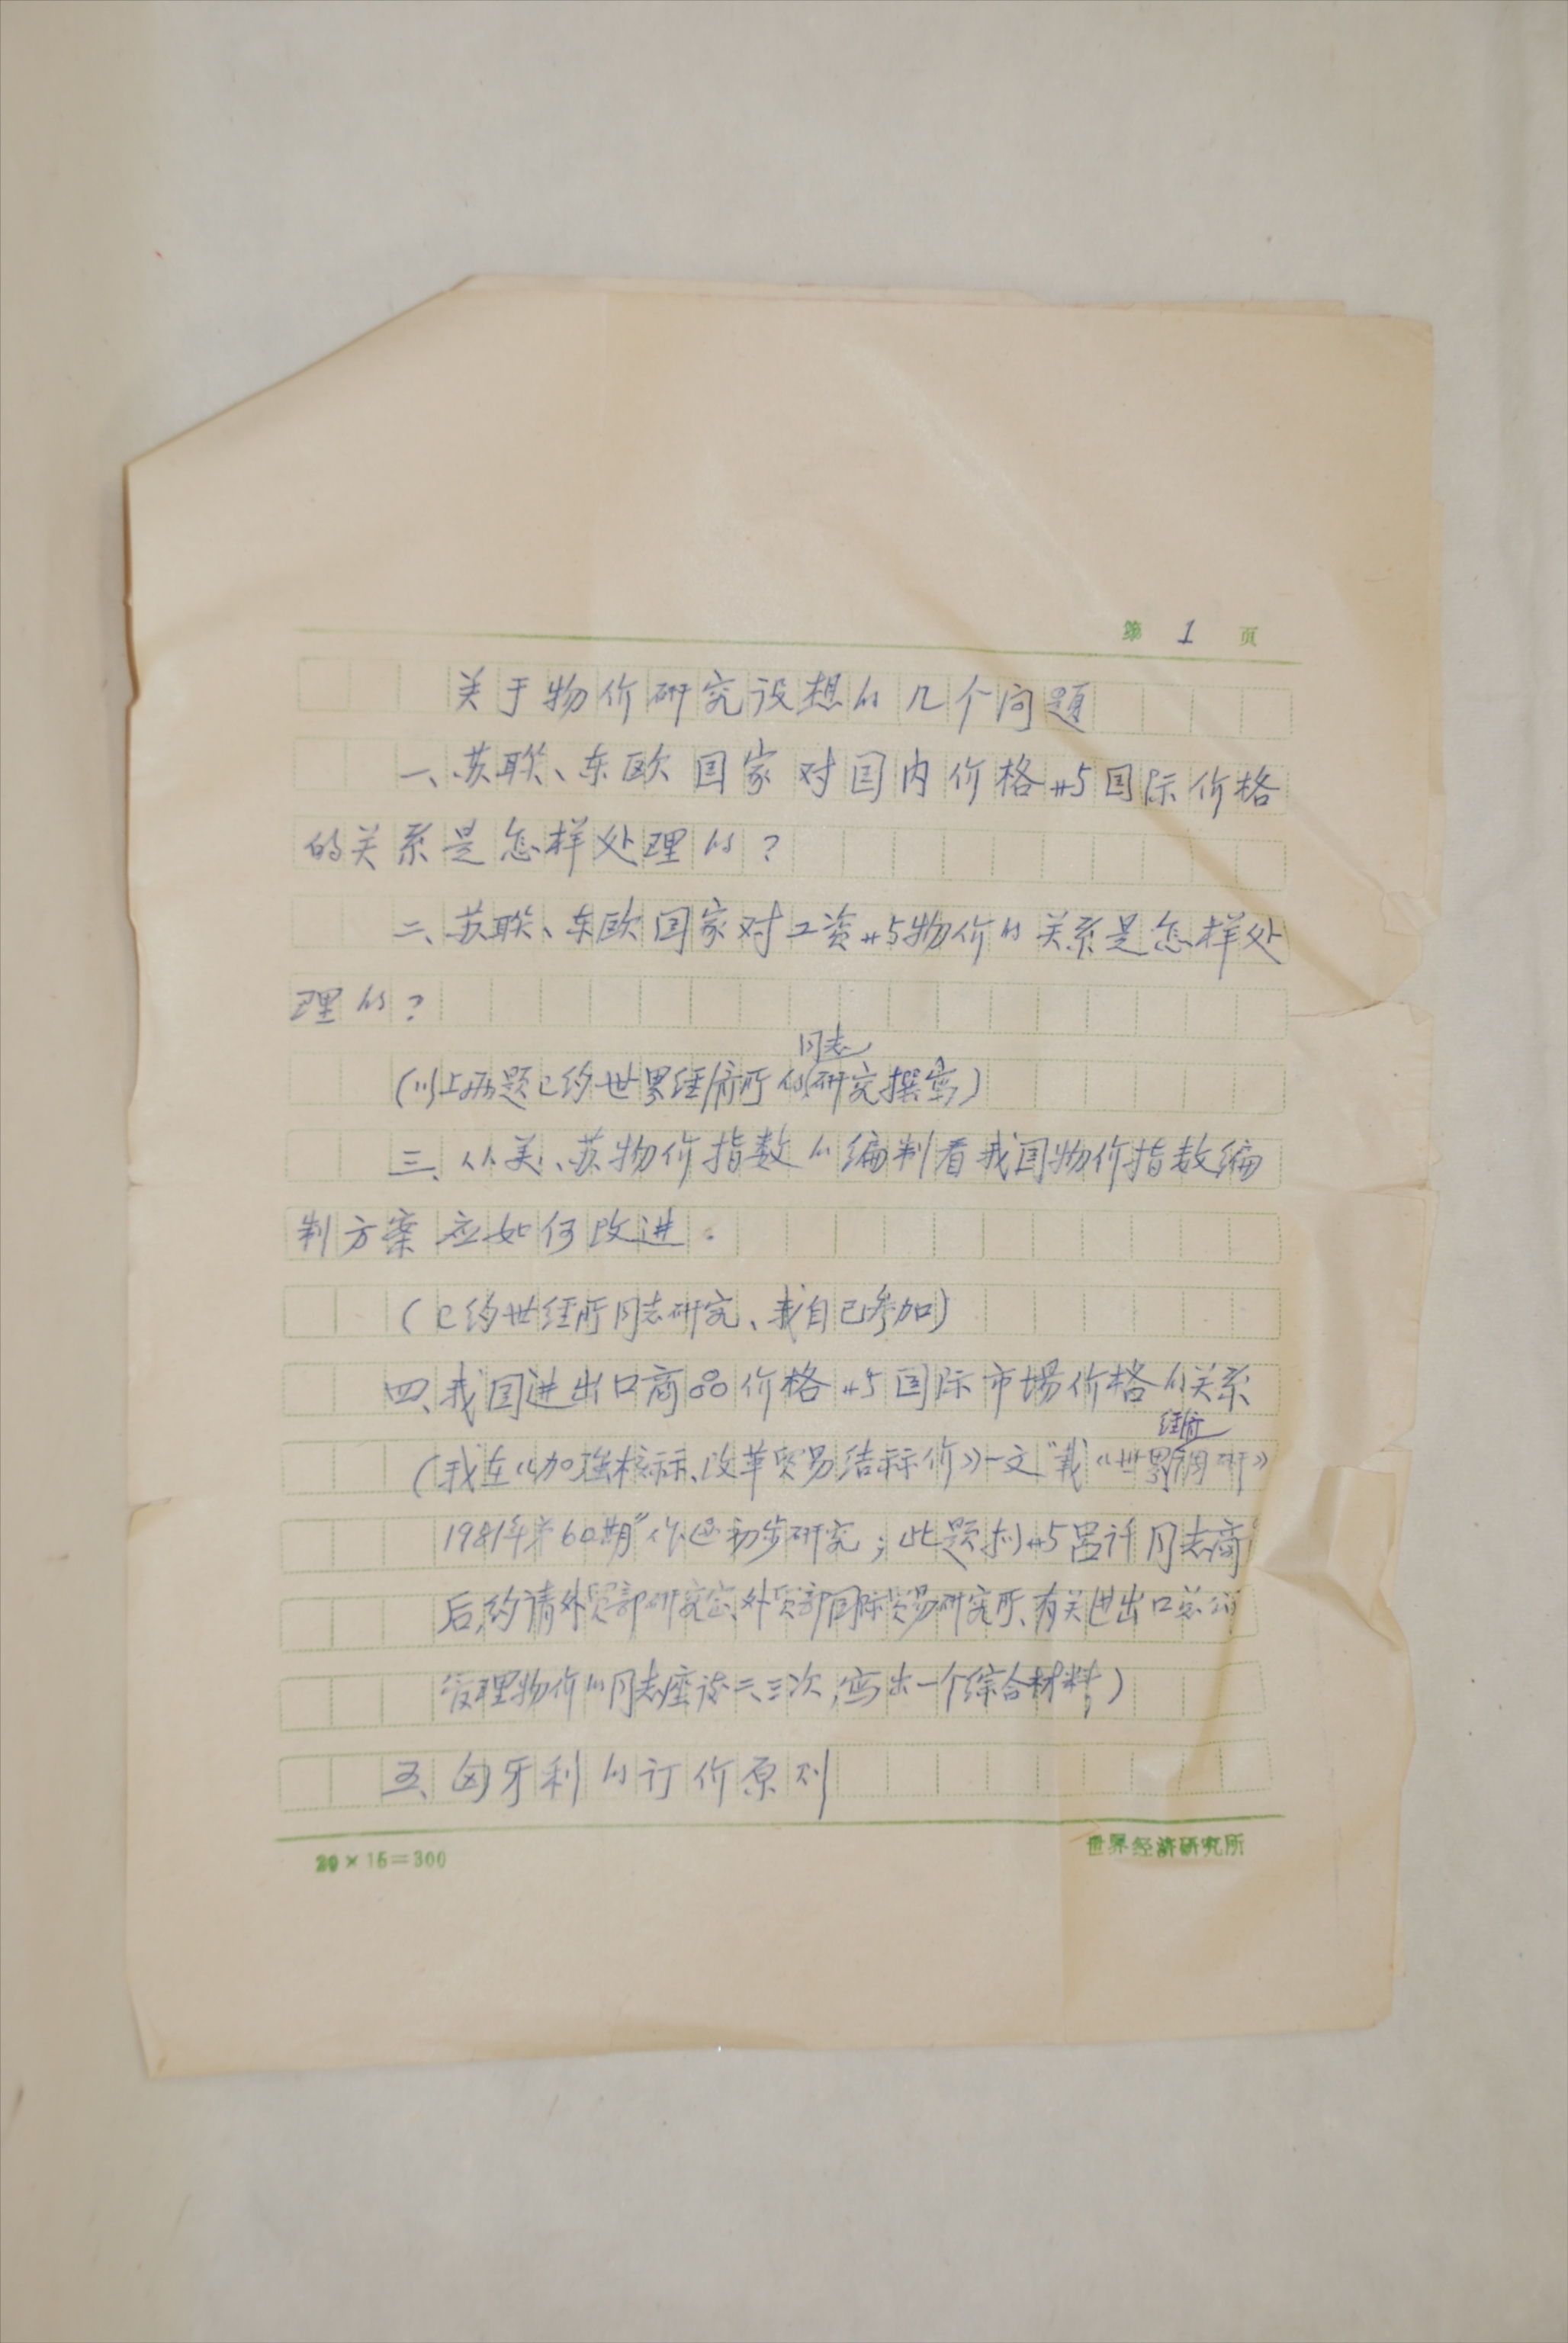 第 1 页
关于物价研究设想的几个问题
一、苏联、东欧国家对国内价格与国际价格
的关系是怎样处理的?
二、苏联、东欧国家对工资与物价的关系是怎样处
理的?
同志
(以上两题已约世界经济所的研究撰写)
三、从美、苏物价指数的编制看我国物价指数编
制方案应如何改进。
(已约世经所同志研究、我自己参加)
四、我国进出口商品价格与国际市场价格的关系
经济
(我在《加强核标、改革贸易结标价》一文"载《世界调研》
1981年第60期"作过初步研究;此题拟与吕许同志商
后,约请外贸部研究室、外贸部国际贸易研究所、有关进出口总公司
管理物价的同志座谈二、三次,写出一个综合材料;)
五、匈牙利的订价原则
20×15=300
世界经济研究所